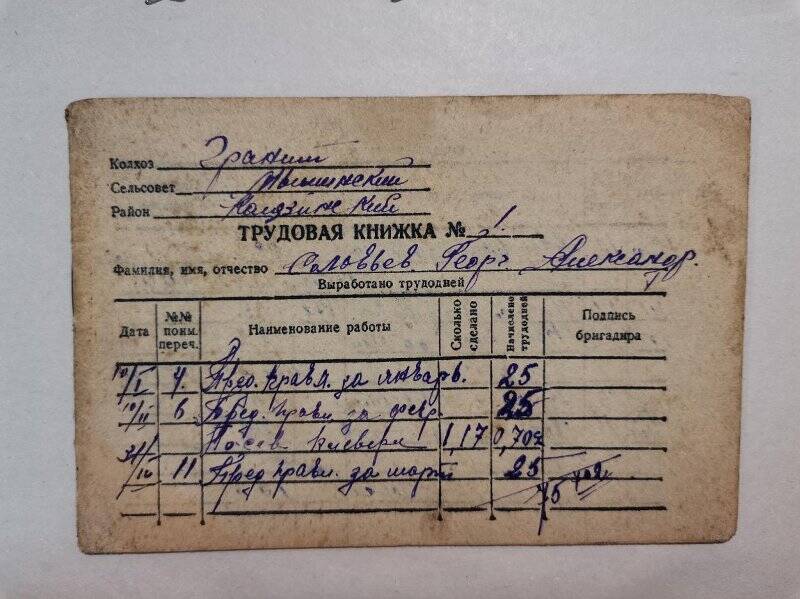 Колхоз Гранит
Сельсовет
Район
ТРУДОВАЯ КНИЖКА № 1.
Фамилия, имя, отчество Соловьев Георг Александр.
Выработано трудодней
Дата №№ поим. переч. Наименование работы Сколько сделано Начислено трудодней Подпись бригадира
10/I 4. Пред. правл. за январь. 25
10/II 6 Пред. правл за февр. 25
Посев клевера 1,17 0,702
11 Пред правл. за март 25
75 702